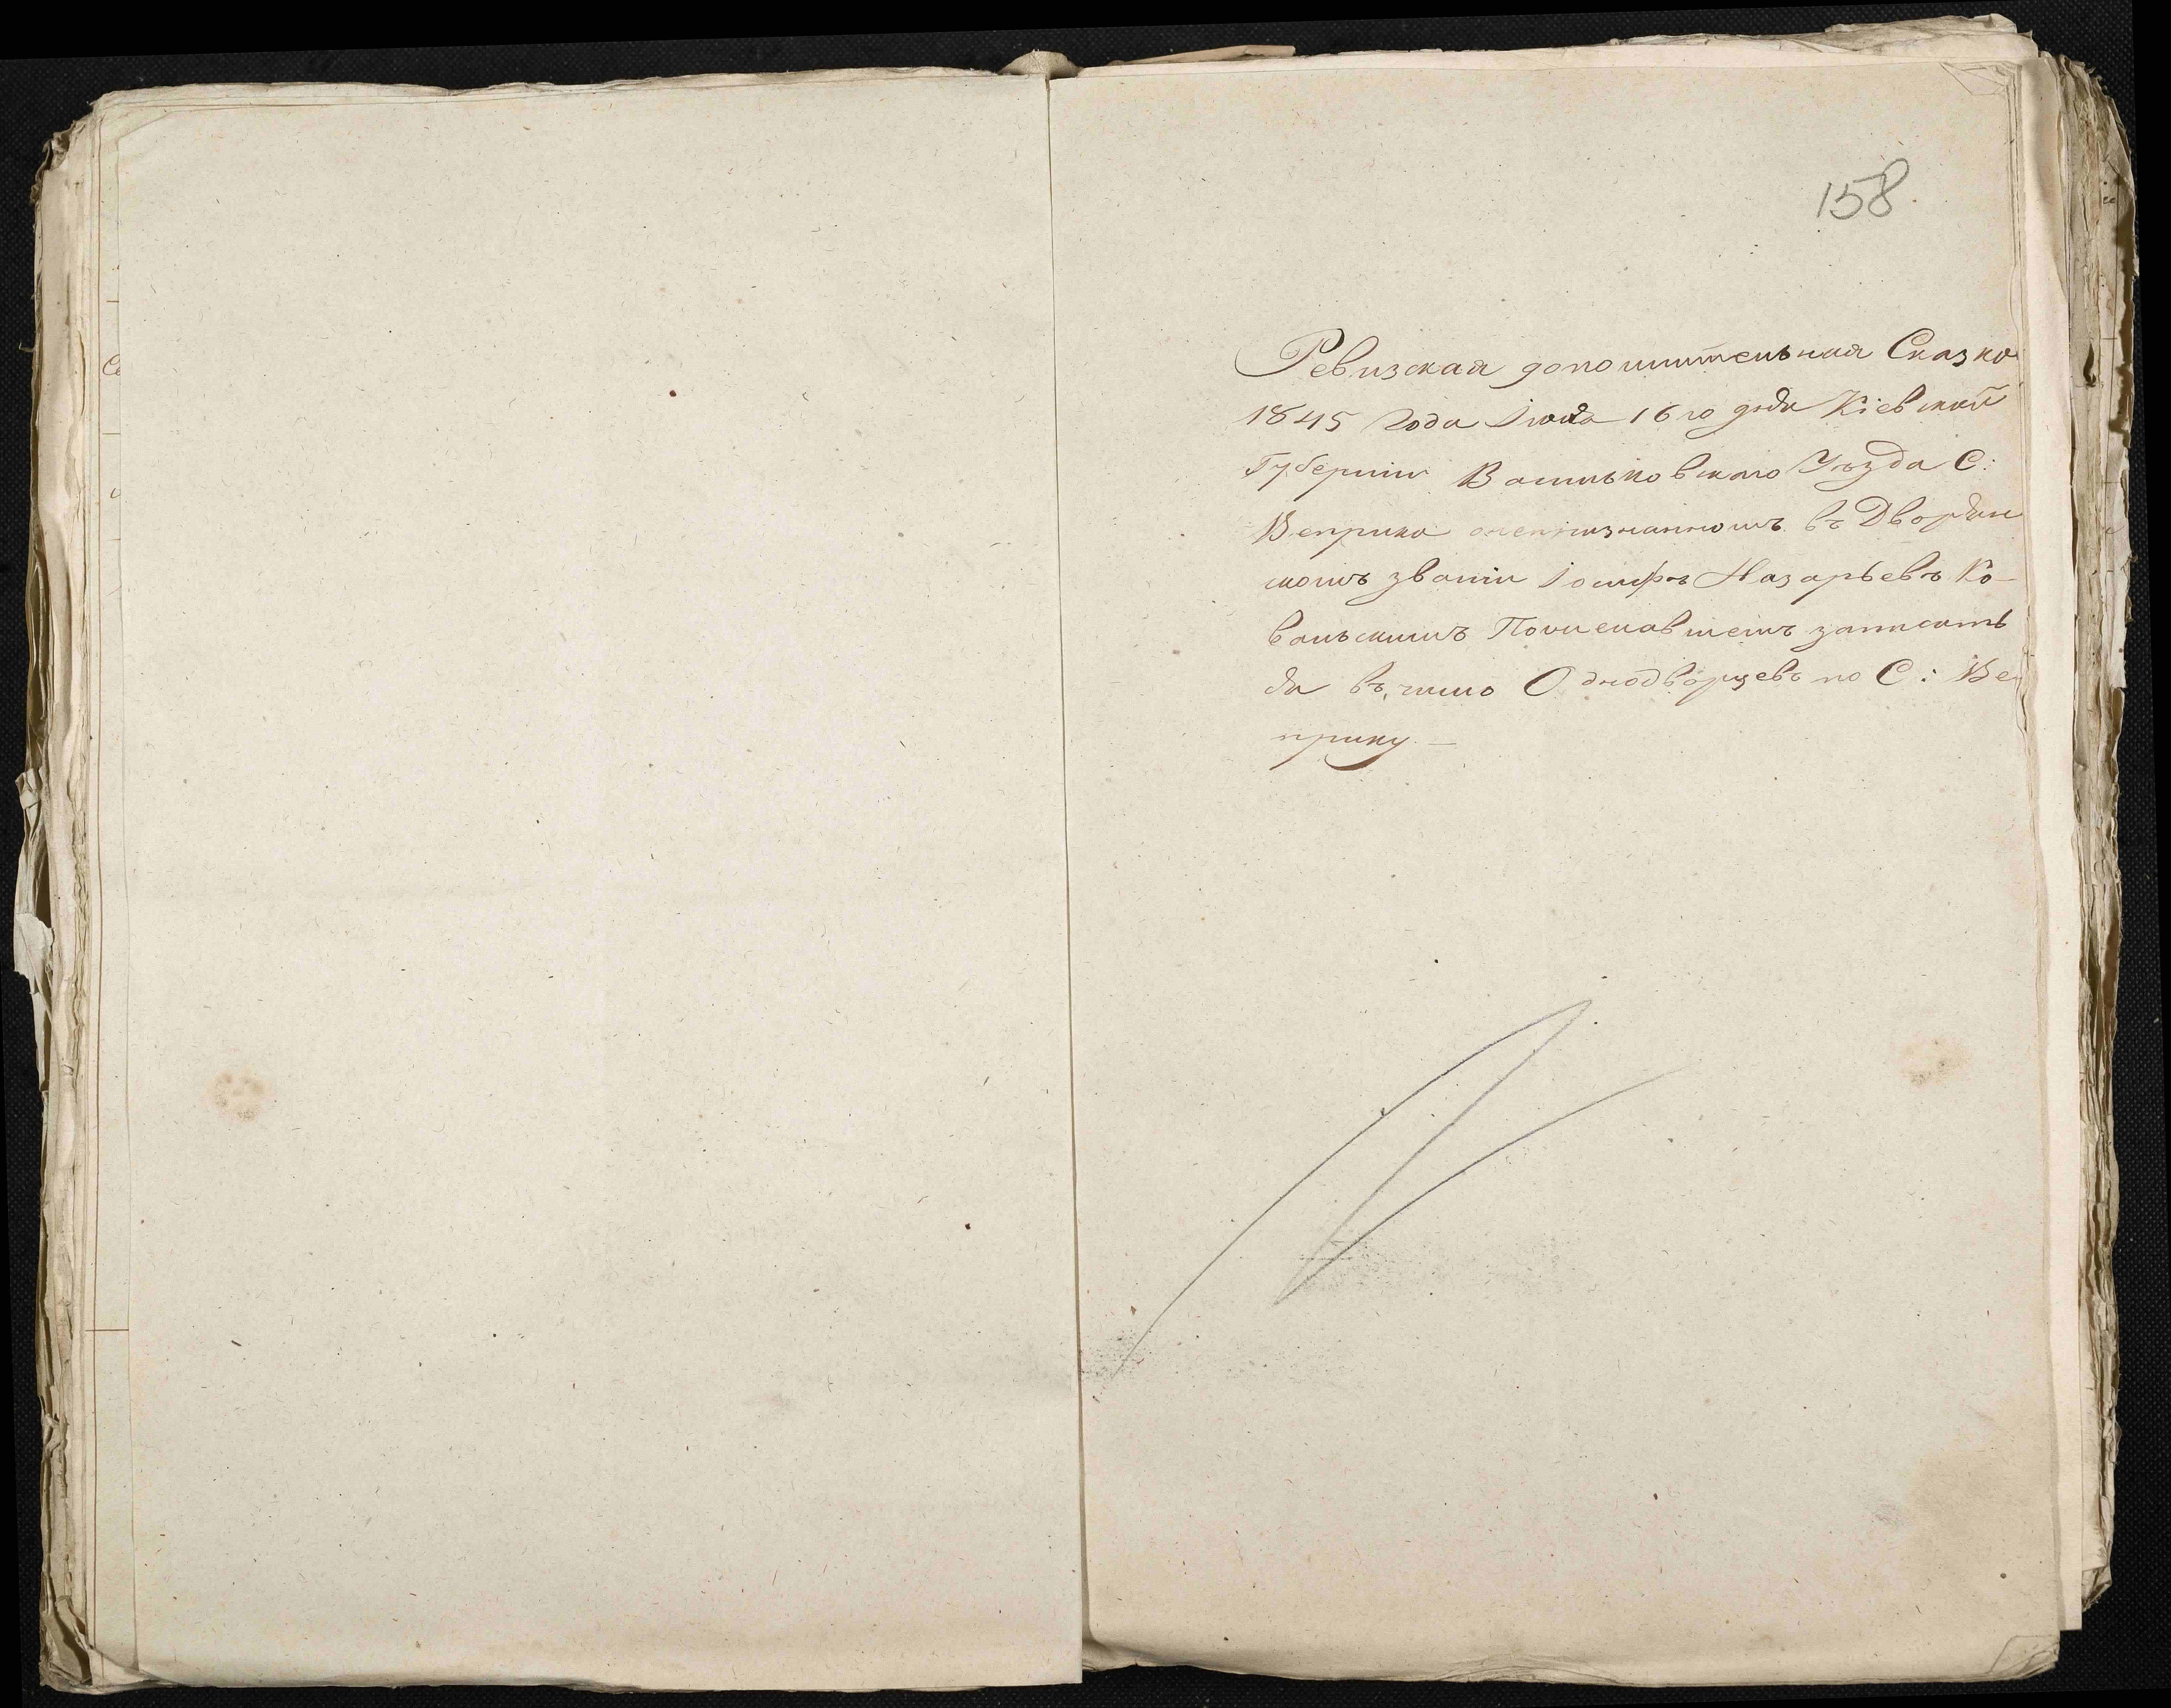 158
Ревизская дополнительная Сказка
1845 Года Іюля 16го дня Кіевской
Губерніи Васильковскаго Уѣзда С:
Веприка онепризнанномъ въ Дворян
скомъ званіи Іосифъ Назарьевъ Ко-
вальскимъ Поожелавшемъ записать
ся въ число Однодворцевъ по С: Ве
прику. —